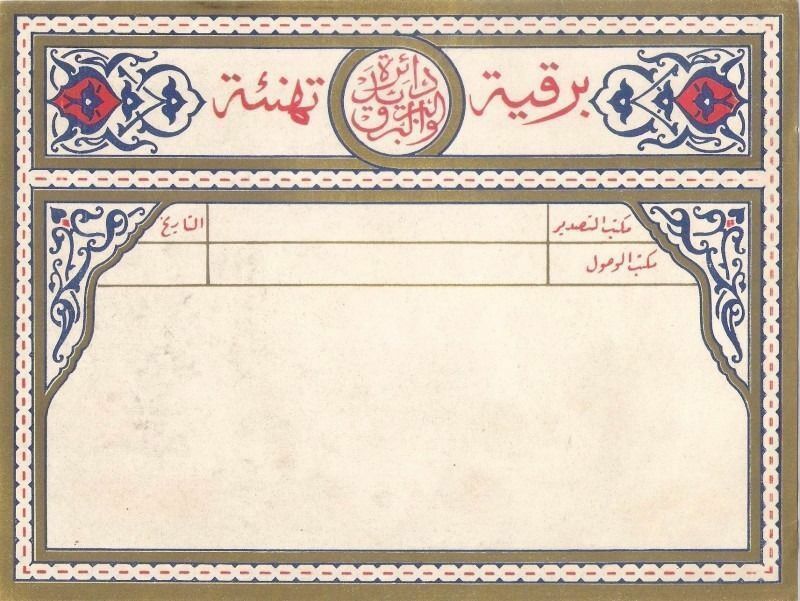 برقية تهنئة
دائرة
البريد
والبرق
مكتب التصدير
التاريخ
مكتب الوصول